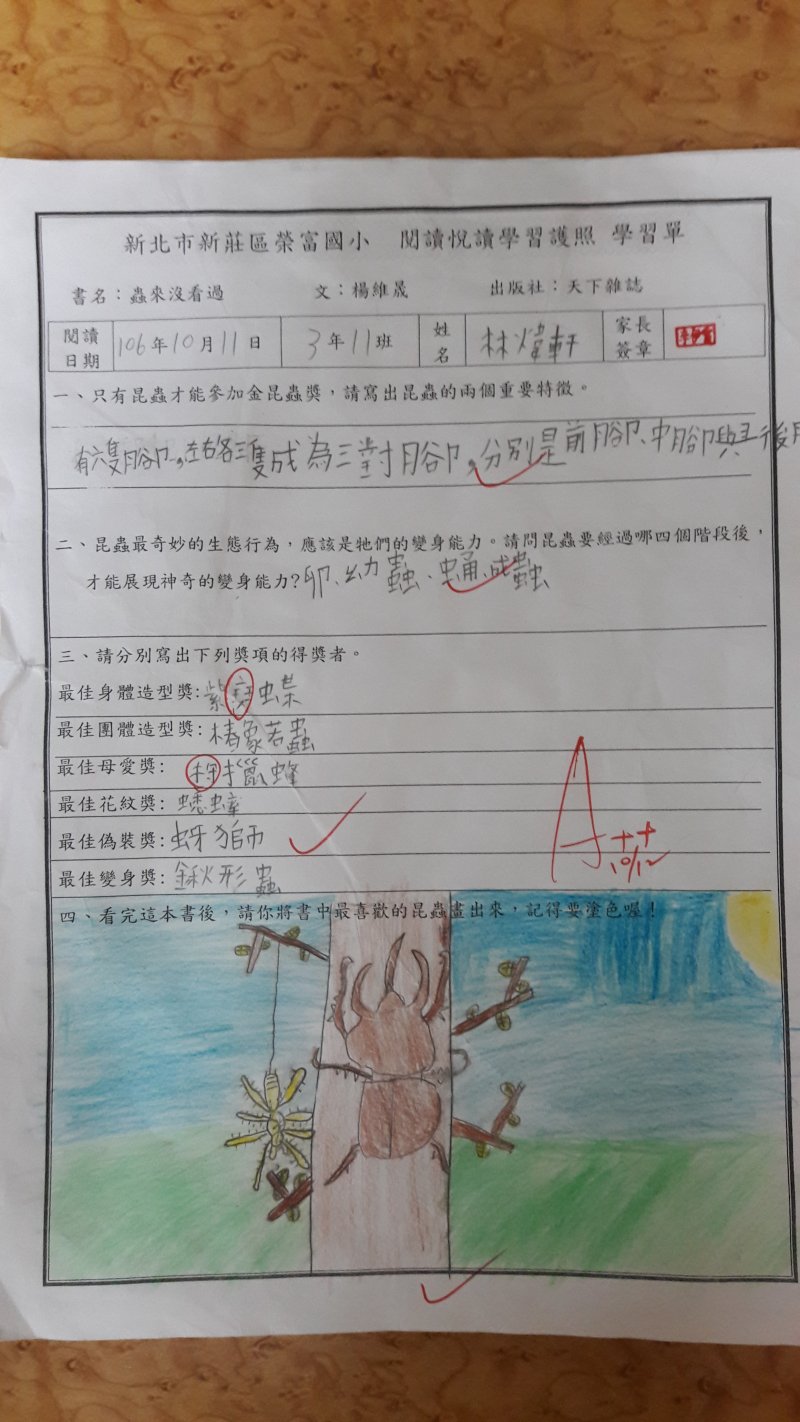 新北市新莊區榮富國小 閱讀悅讀學習護照 學習單
書名：蟲來沒看過 文：楊維晟 出版社：天下雜誌
閱讀日期 106年10月11日 3年11班 姓名 林煒軒 家長簽章
一、只有昆蟲才能參加金昆蟲獎，請寫出昆蟲的兩個重要特徵。
有六隻腳，左右各三隻成為三對腳，分別是前腳、中腳與後
二、昆蟲最奇妙的生態行為，應該是牠們的變身能力。請問昆蟲要經過哪四個階段後，
才能展現神奇的變身能力?卵、幼蟲、蛹、成蟲
三、請分別寫出下列獎項的得獎者。
最佳身體造型獎:紫蝶
最佳團體造型獎:椿象若蟲
最佳母愛獎: 狩獵蜂
最佳花紋獎: 蟋蟑
最佳偽裝獎: 蚜獅
最佳變身獎: 鍬形蟲
A++
10/12
四、看完這本書後，請你將書中最喜歡的昆蟲畫出來，記得要塗色喔！